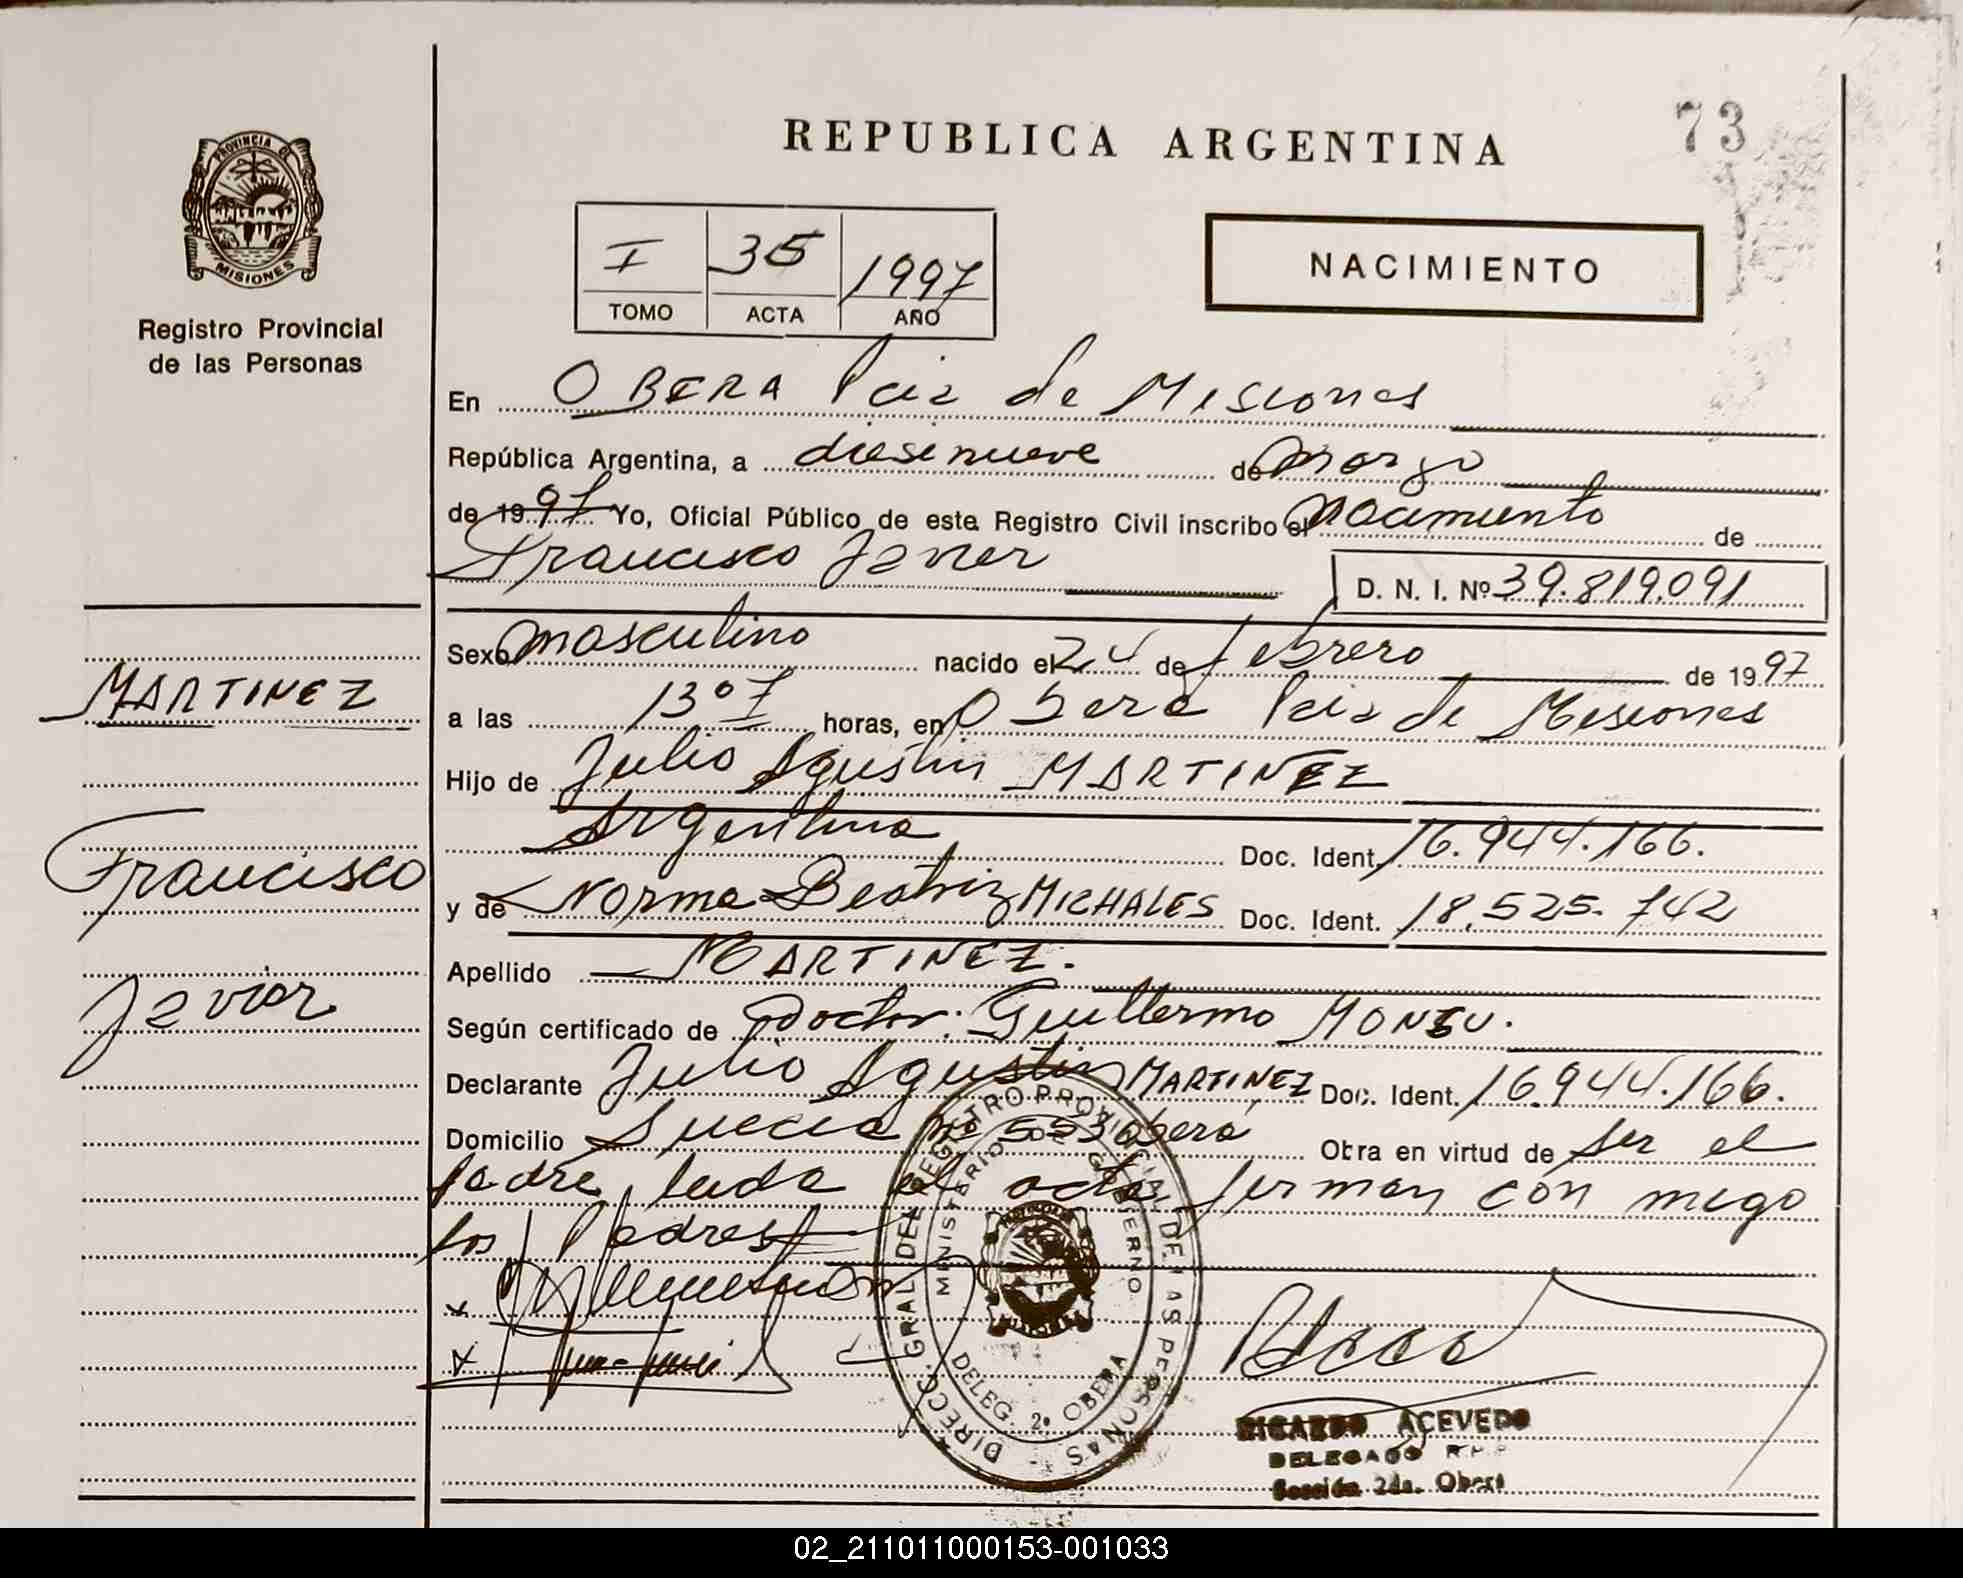 REPUBLICA ARGENTINA
73
PROVINCIA DE
MISIONES
Registro Provincial
de las Personas
I 35 1997
TOMO ACTA AÑO
NACIMIENTO
En OBERA Pcia de Misiones
República Argentina, a diesinueve de Marzo
de 1997 Yo, Oficial Público de este Registro Civil inscribo el Nacimiento de
Francisco Javier
D. N. I. Nº 39.819.091
Sexo masculino nacido el 24 de febrero de 1997
a las 13º7 horas, en Oberá Pcia de Misiones
Hijo de Julio Agustin MARTINEZ
Argentina Doc. Ident. 16.944.166.
y de Norma Beatriz MICHALES Doc. Ident. 18.525.742
Apellido MARTINEZ.
Según certificado de Doctor: Guillermo MONSU.
Declarante Julio Agustin MARTINEZ Doc. Ident. 16.944.166.
Domicilio Suecia Nº 553 Oberá Obra en virtud de ser el
Padre, leida el acta, firman con migo
los Padres
MARTINEZ
Francisco
Javier
DIRECC. GRAL DEL REGISTRO PROVINCIAL DE LAS PERSONAS
MINISTERIO DE GOBIERNO
DELEG. 2º OBERA
RICARDO ACEVEDO
DELEGADO R.P.P
Sección 2da. Oberá
02_211011000153-001033